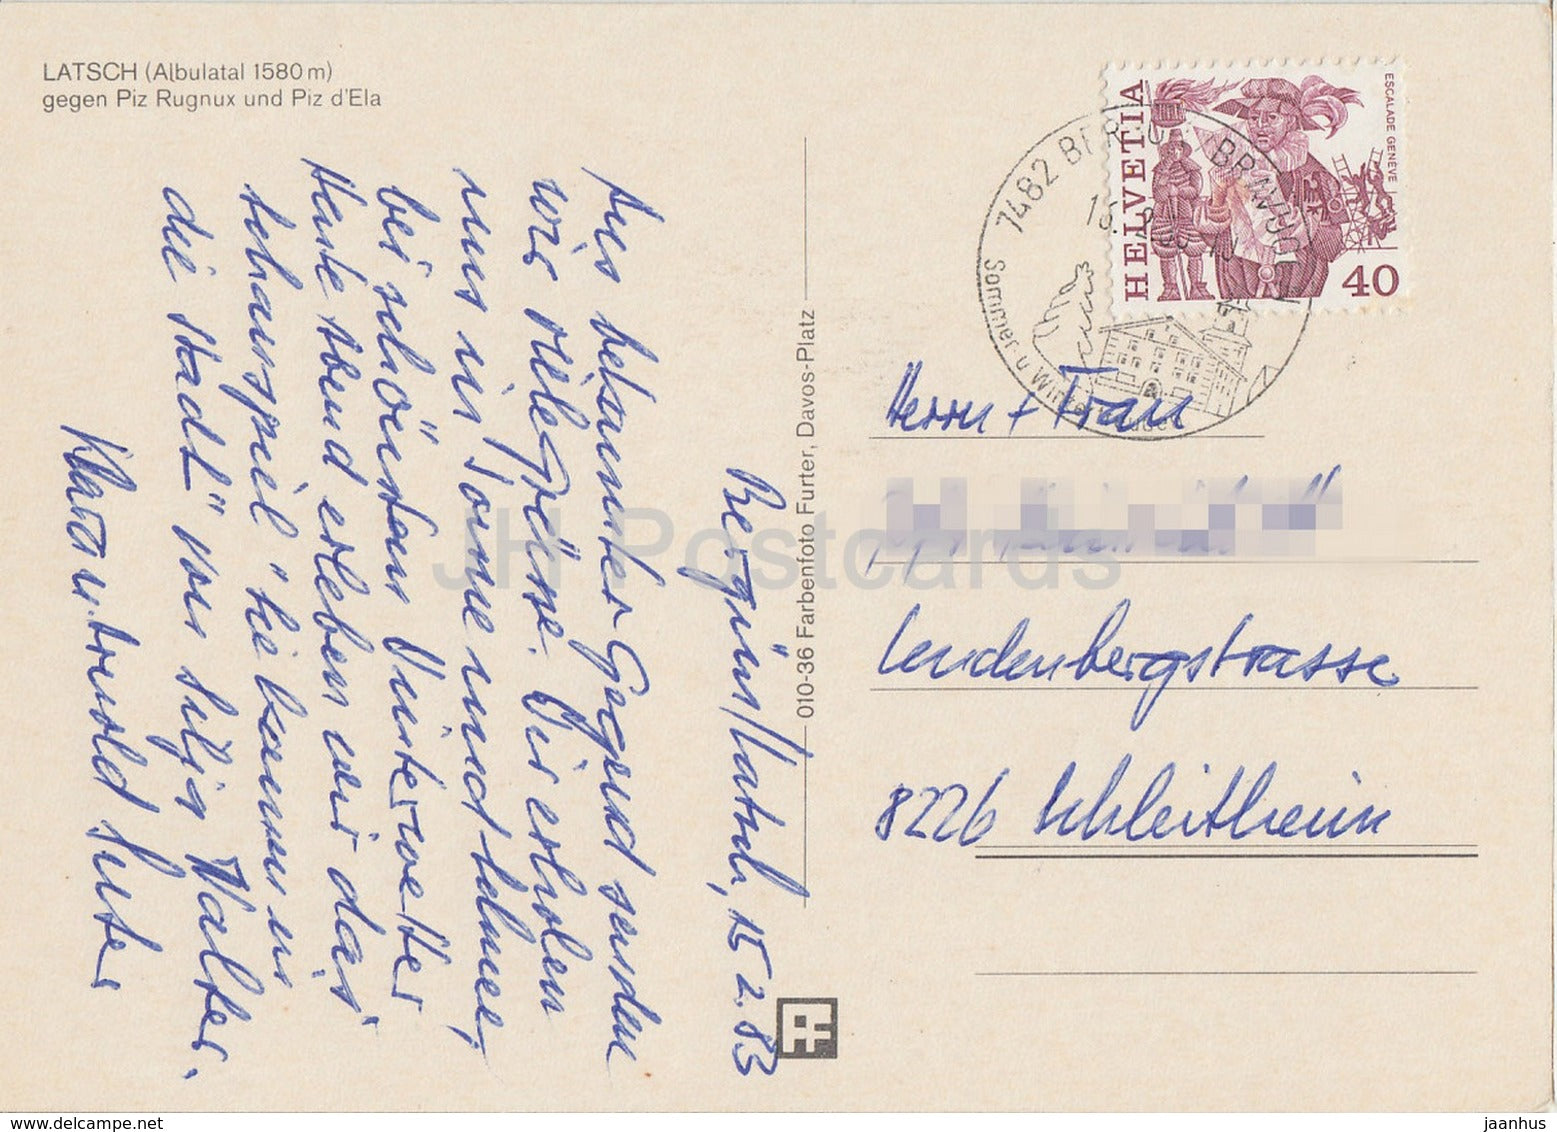 LATSCH (Albulatal 1580 m)
gegen Piz Rugnux und Piz d'Ela
Bergün/Latsch, 15 2. 83
Aus bekannter Gegend senden
wir viele Grüsse. Wir erholen
uns in Sonne und Schnee,
bei schönstem Winterwetter
Heute Abend erleben wir das
Schauspiel "Sie kommen in
die Stadt" von Silja Walter.
Klara u. Arnold Suter
010-36 Farbenfoto Furter, Davos-Platz
HELVETIA
ESCALADE GENÈVE
40
7482 BERGÜN/BRAVUOGN
Sommer- u
Herrn + Frau
Lendenbergstrasse
8226 Schleitheim
JH Postcards
jaanhus